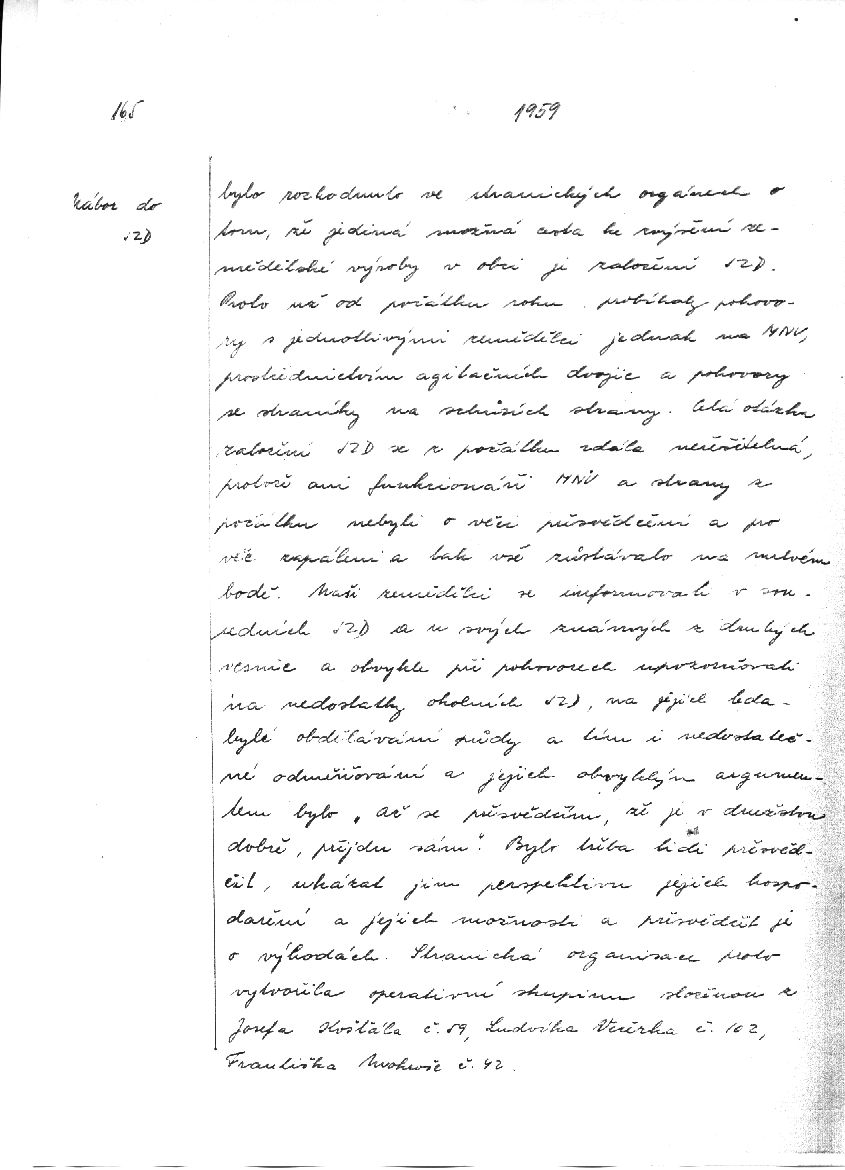 165
1959
Nábor do
JZD
bylo rozhodnuto ve stranických orgánech o
tom, že jediná možná cesta ke zvýšení ze-
mědělské výroby v obci je založení JZD.
Proto už od počátku roku probíhaly pohovo-
ry s jednotlivými zemědělci jednak na MNV,
prostřednictvím agitačních dvojic a pohovory
se straníky na schůzích strany. Celá otázka
založení JZD se z počátku zdála neřešitelná,
protože ani funkcionáři MNV a strany z
počátku nebyli o věci přesvědčeni a pro
věc zapáleni a tak vše zůstávalo na mrtvém
bodě. Naši zemědělci se informovali v sou-
sedních JZD a u svých známých z druhých
vesnic a obvykle při pohovorech upozorňovali
na nedostatky okolních JZD, na jejich leda-
bylé obdělávání půdy a tím i nedostateč-
né odměňování a jejich obvyklým argumen-
tem bylo „Až se přesvědčím, že je v družstvu
dobře, přijdu sám". Bylo třeba lidi přesvěd-
čit, ukázat jim perspektivu jejich hospo-
daření a jejich možnosti a přesvědčit je
o výhodách. Stranická organisace proto
vytvořila operativní skupinu složenou z
Josefa Košťála č. 59, Ludvíka č. 102,
Františka č. 42.